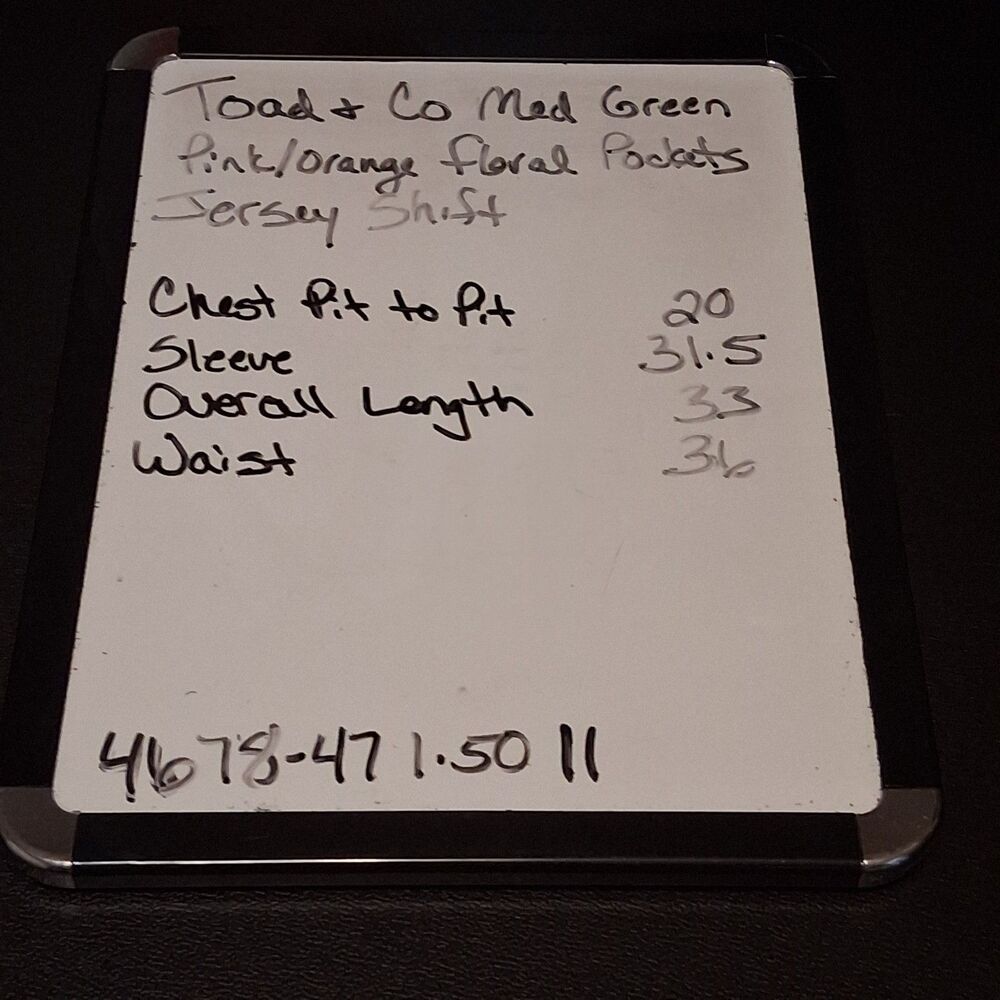 Toad & Co Med Green
Pink/Orange Floral Pockets
Jersey Shift
Chest Pit to Pit 20
Sleeve 31.5
Overall Length 33
Waist 36
4678-47 1.50 11